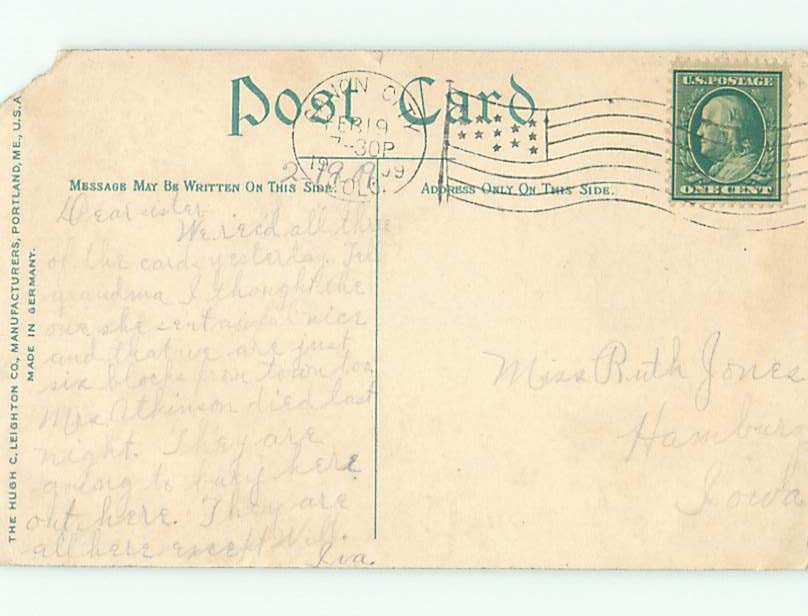 Post Card
CANON CITY
FEB 19
7-30P
1909
COLO.
2-19-09
U.S. POSTAGE
ONE CENT
MESSAGE MAY BE WRITTEN ON THIS SIDE.
ADDRESS ONLY ON THIS SIDE.
THE HUGH C. LEIGHTON CO., MANUFACTURERS, PORTLAND, ME., U.S.A.
MADE IN GERMANY.
Dear sister
We rec'd all three
of the cards yesterday. Tell
grandma I thought the
one she sent nice
and that we are just
six blocks from town too
Mrs. Atkinson died last
night. They are
going to bury here
out here. They are
all here except Will.
Iva.
Miss Ruth Jones
Hamburg
Iowa